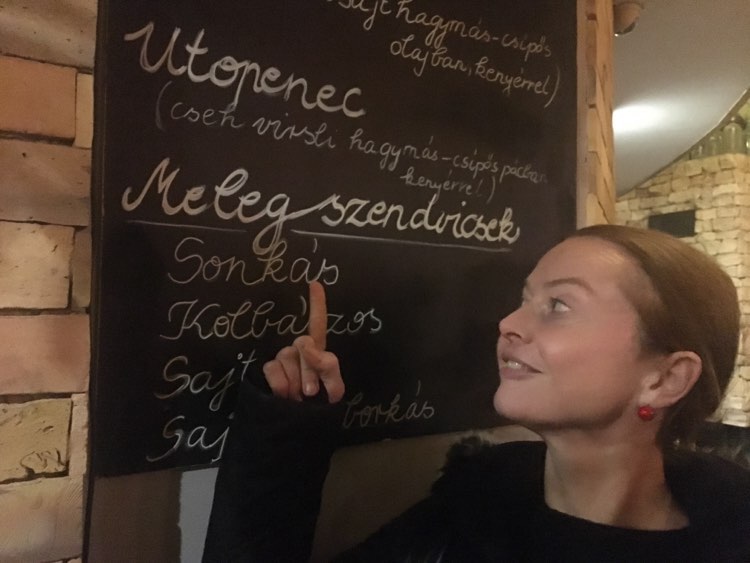 hagymás-csípős
olajban, kenyérrel)
Utopenec
(cseh virsli hagymás-csípős pácban
kenyérrel)
Meleg szendvicsek
Sonkás
Kolbászos
Sajt
Saj borkás